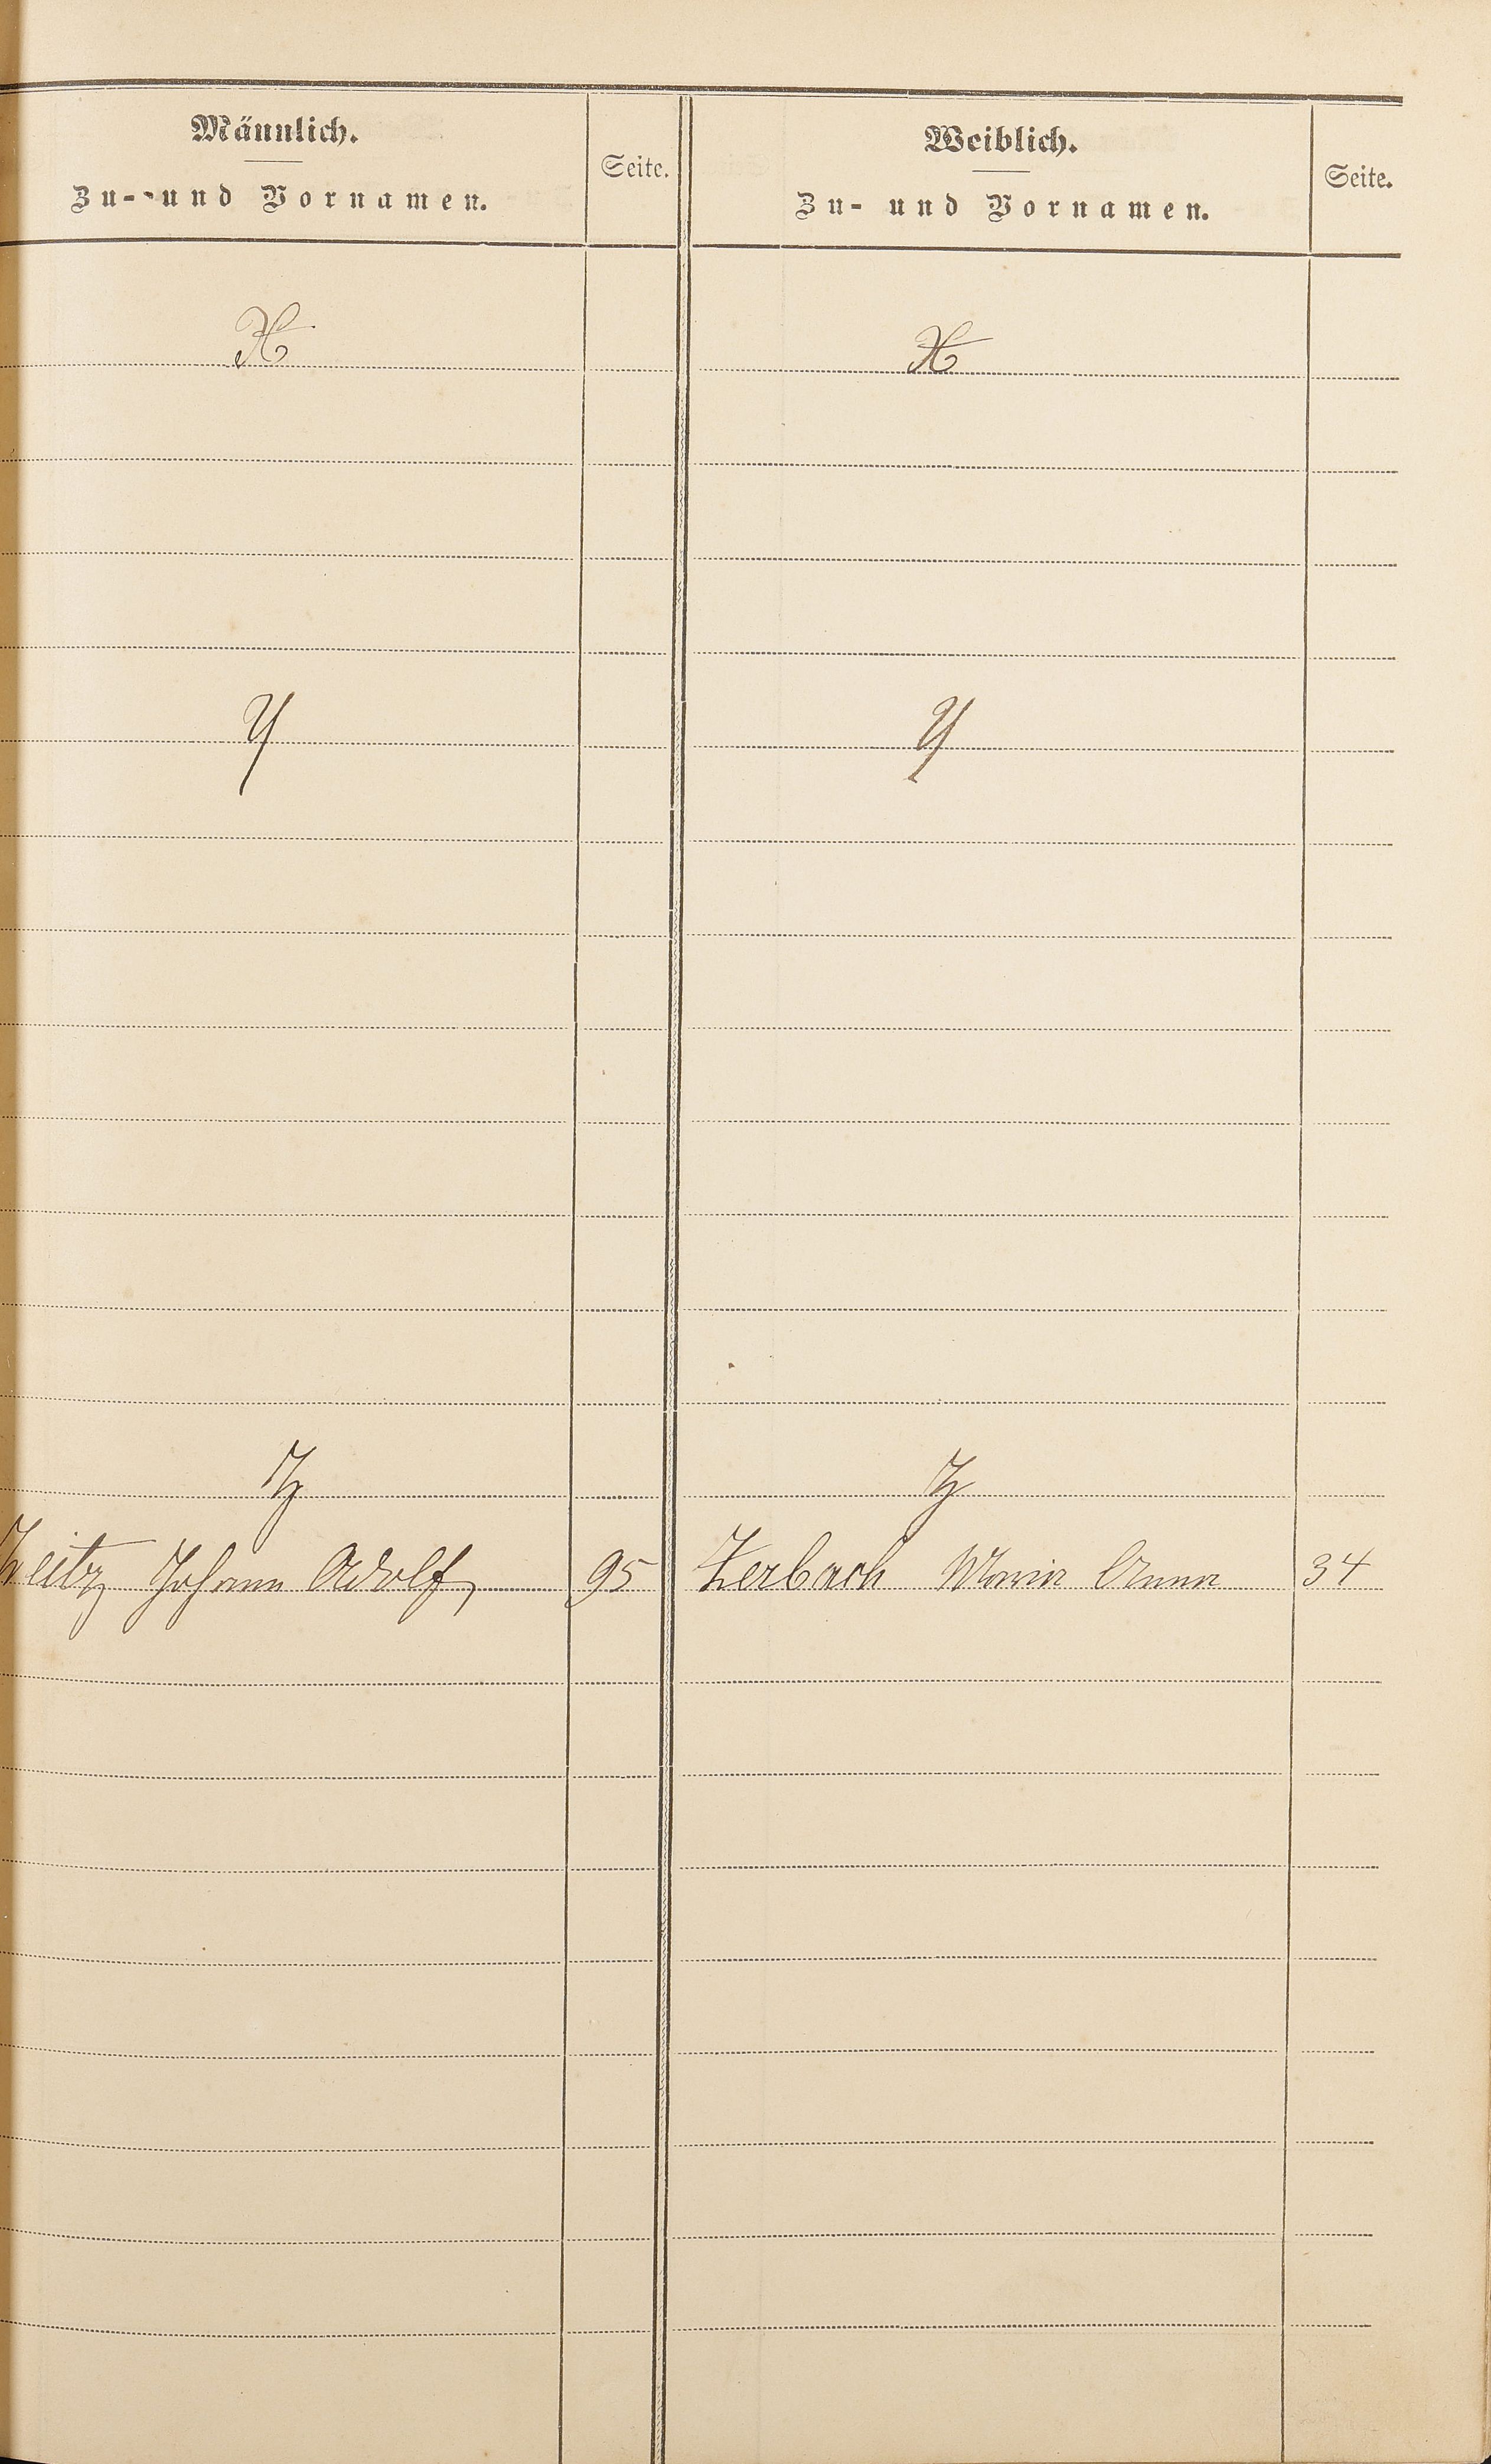 Männlich. Seite. Weiblich. Seite.
Zu- und Vornamen. Zu- und Vornamen.
X X
Y Y
Z Z
Zeitz Johann Adolf, 95 Zerbach Maria Anna 34